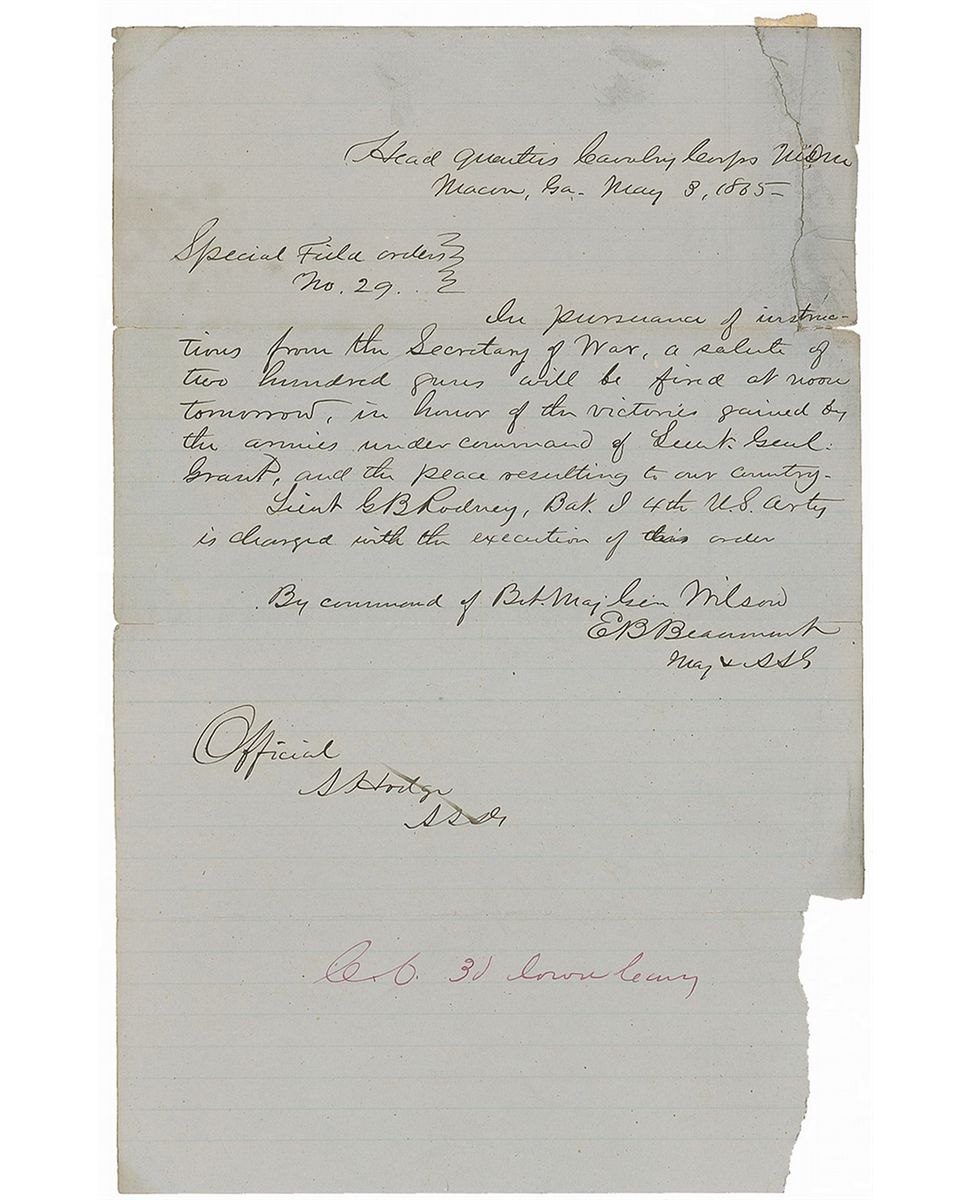 Head Quarters Cavalry Corps M.D.M
Macon, Ga. May 3, 1865
Special Field orders
No. 29.
In pursuance of instruc-
tions from the Secretary of War, a salute of
two hundred guns will be fired at noon
tomorrow, in honor of the victories gained by
the armies under command of Lieut. Genl.
Grant, and the peace resulting to our country.
Lieut G B Rodney, Bat. I 4th U.S. Arty
is charged with the execution of this order
By command of Bvt. Maj Gen Wilson
E B Beaumont
Maj & A A G
Official
Hodge
C.O. 3d Iowa Cavy